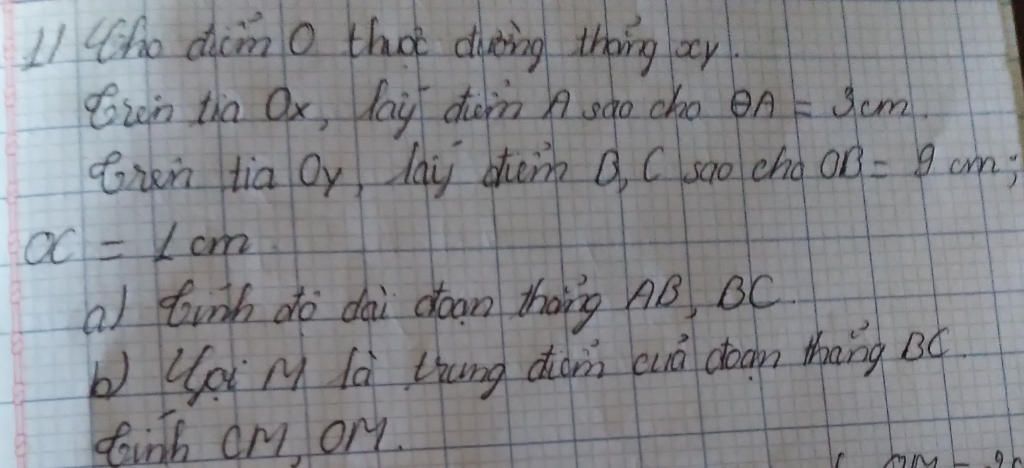 1) Cho điểm O thuộc đường thẳng xy.
Trên tia Ox, lấy điểm A sao cho OA = 3cm.
Trên tia Oy, lấy điểm B, C sao cho OB = 9 cm;
OC = 1 cm.
a) Tính độ dài đoạn thẳng AB, BC.
b) Gọi M là trung điểm của đoạn thẳng BC.
Tính CM, OM.